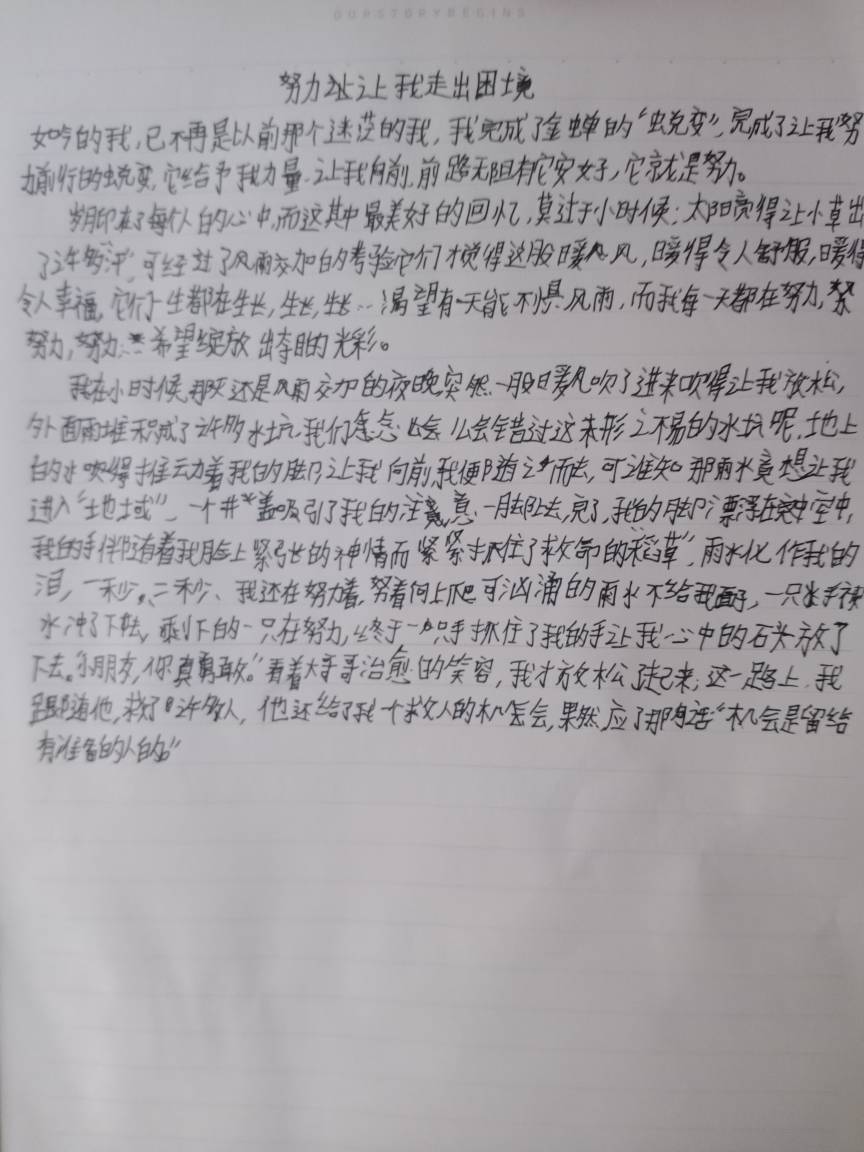 OURSTORYBEGINS
努力让我走出困境
如今的我,已不再是以前那个迷茫的我,我完成了金蝉的“蜕变”,完成了让我努
力前行的蜕变,它给予我力量,让我向前,前路无阻有它安好,它就是努力。
岁月印在了每个人的心中,而这其中最美好的回忆,莫过于小时候;太阳竟得让小草出
了许多“汗”,可经过了风雨交加的考验它们才觉得这股暖风,暖得令人舒服,暖得
令人幸福,它们一生都在生长,生长,生长…渴望有一天能不惧风雨,而我每一天都在努力,努
努力,努力…希望绽放出夺目的光彩。
我在小时候,那天还是风雨交加的夜晚突然一股暖风吹了进来吹得让我放松,
外面雨堆积成了许多水坑,我们怎么会错过这来形之不易的水坑呢,地上
的水吹得推动着我的脚让我向前,我便随之而去,可谁知那雨水竟想让我
进入“地域”,一个井盖吸引了我的注意,一脚踩去,完了,我的脚漂浮在空中,
我的手伴随着我脸上紧张的神情而紧紧抓住了救命的“稻草”,雨水化作我的
泪,一秒,二秒、我还在努力着,努着向上爬可汹涌的雨水不给我面子,一只手被
水冲了下去,剩下的一只在努力,终于一只手抓住了我的手让我心中的石头放了
下去。“小朋友,你真勇敢。”看着大哥哥治愈的笑容,我才放松了起来;这一路上,我
跟随他,救了许多人,他还给了我一个救人的机会,果然,应了那句话“机会是留给
有准备的人的”